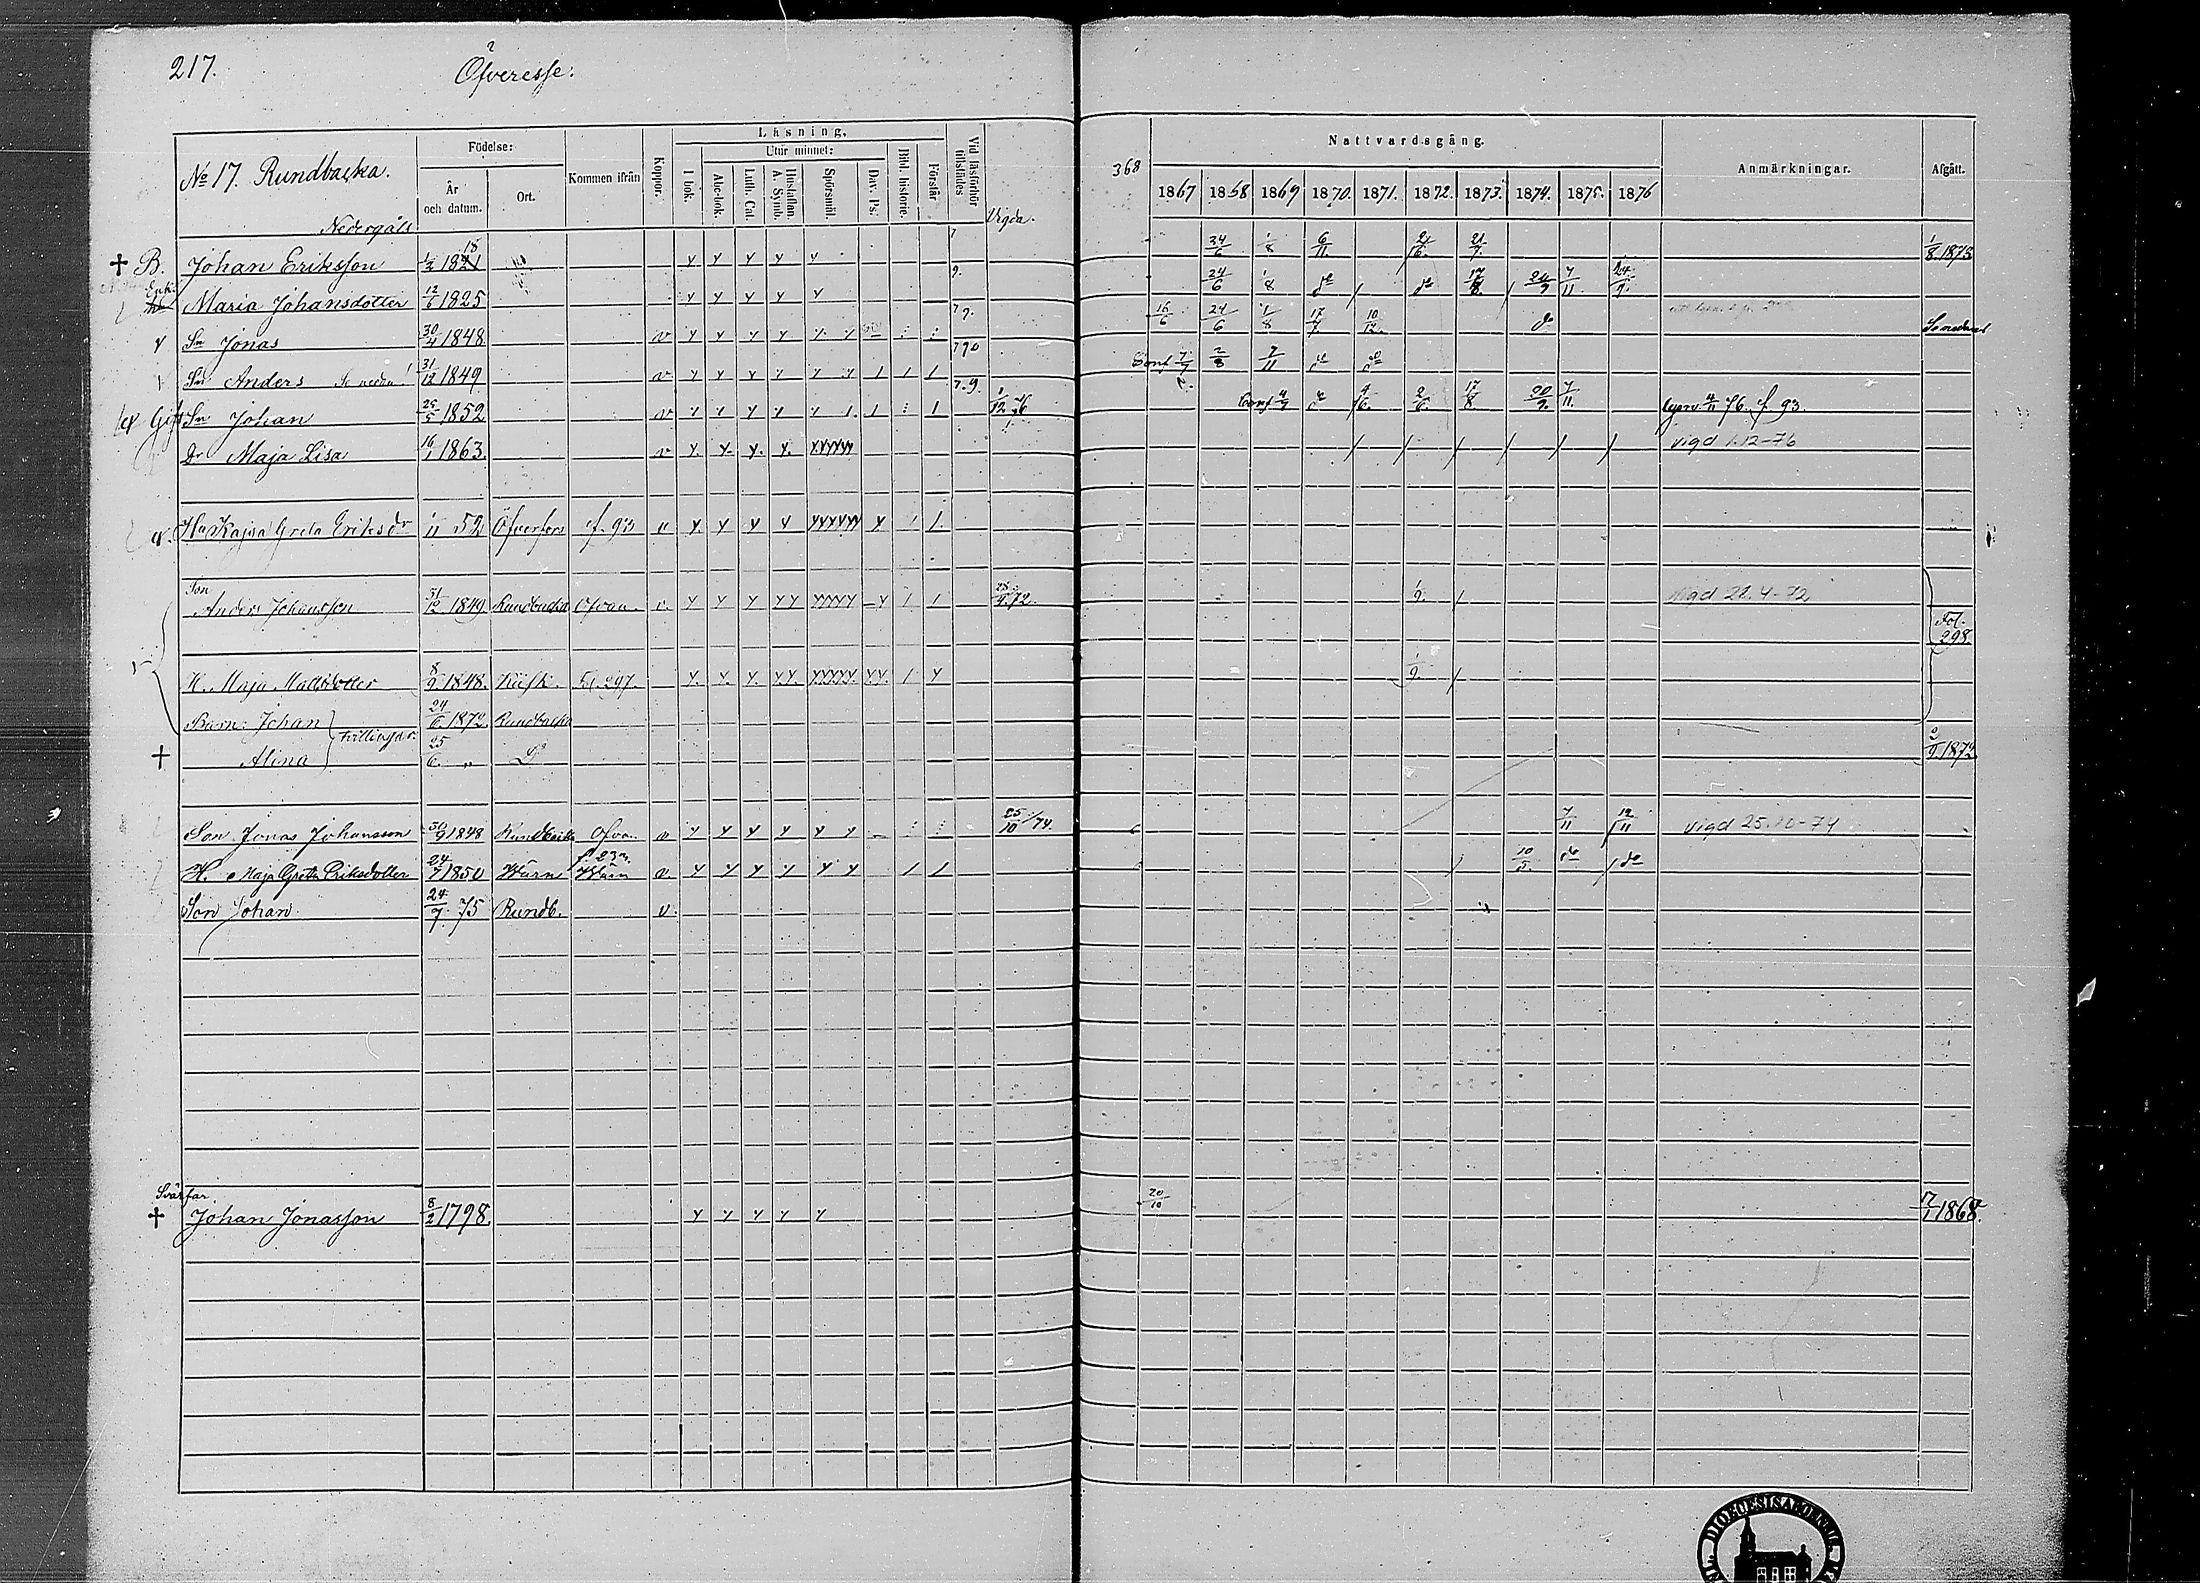 217. Öfveresse:
No 17. Rundbacka.
Nedergåls
Födelse:
År och datum.
Ort.
Kommen ifrån
Koppor.
Läsning.
Utur minnet:
I bok.
Abc-bok.
Luth. Cat.
Hustaflan. A. Symb.
Spörsmål.
Dav. Ps.
Bibl. historie.
Förstår
Vid läsförhör tillstädes
Vigda.
368
Nattvardsgång.
1867 1868 1869 1870. 1871. 1872. 1873. 1874. 1875. 1876
Anmärkningar.
Afgått.
† B. Johan Eriksson 1821 18 y y y y y 7 24/6 1/8 6/11 21/7 1/8 1873
Enk: Maria Johansdotter 12/6 1825 y y y y y 9. 24/6 1/8 do do 17/8 7/11 24/9.
Sn Jonas 30/4 1848 v y y y y y y 79. 16/6 24/6 1/8 17/7 10/12. do Se nedan
Sn Anders Se nedan! 31/12 1849 v y y y y y y 1 1 1 790 Conf 7/7 2/8 7/11 do do
Gift Sn Johan 25/5 1852 v y y y y y 1. 1 1 7.9. 1/12 76 Conf 4/7 do 4/6. 2/6. 17/8 20/9. 7/11. lysn 4/11 76. f. 93.
Dr Maja Lisa 16/1 1863. v y y y y yyyyy vigd 1.12-76
Hu Kajsa Greta Eriksdr 1/11 52 f. 93 v y y y y yyyyyy y 1 1.
Son
Anders Johansson 31/12 1849. Rundbacka Ofvan. v. y y y yy yyyyy y 1 1 28/4 72. 1/9. vigd 28.4-72
Fol. 298
H. Maja Mattsdotter 8/9 1848. Fol. 297. y y y yy yyyyy yy 1 y 1/9.
Barn: Johan 24/6 1872. Rundbacka
tvillingar
† Alina 25/6. „ Do 2/9 1872
Son Jonas Johansson 30/9 1848 Rundbacka Ofvan. v y y y y y y 25/10 /74. 7/11 12/11 vigd 25.10-74
H. Maja Greta Eriksdotter 24/7 1850 Wärn Wärn v. y y y y y y 1 1 10/5. do do
Son Johan. 24/7. 75 Rundb. v.
Svärfar
† Johan Jonasson 8/2 1798. y y y y y 20/10 17/1 1868.
DIOECESIS